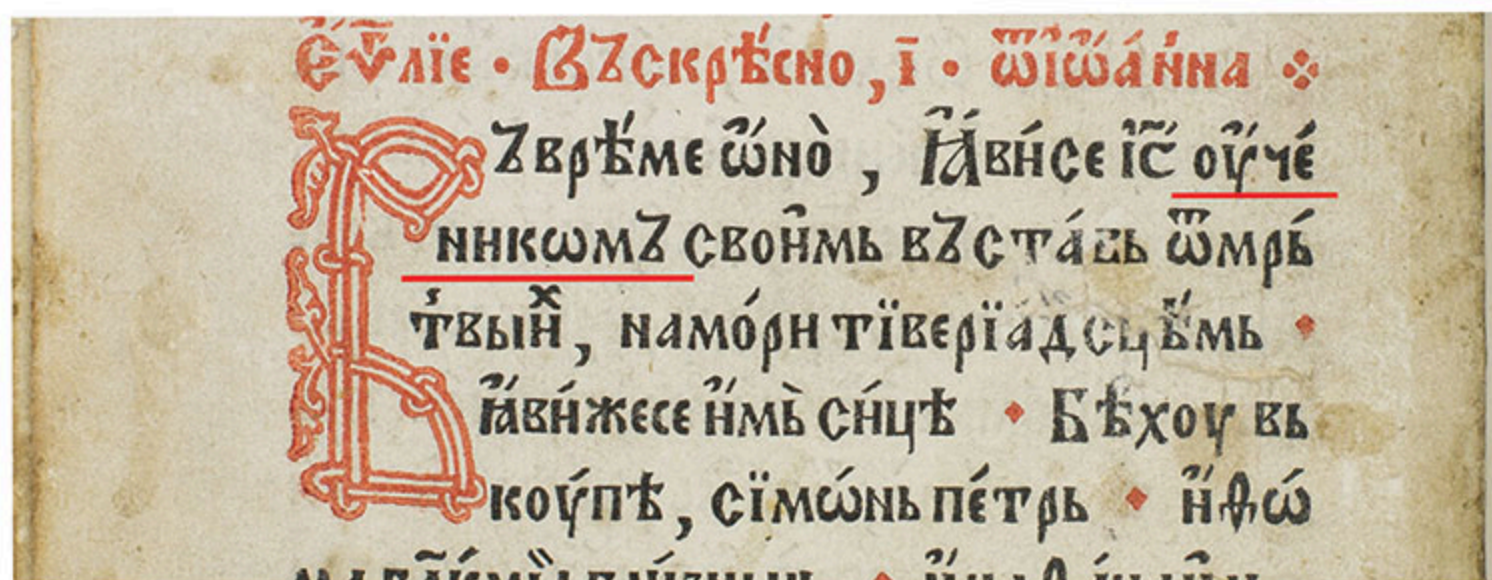 Е҆ѵⷢ҇лїе • Въскрⷭ҇ѣсно, ı҃ • ѿі҆ѡ҆а́нна
Въврѣ́ме ѡ҆́но̀ , Ꙗ҆ви́се і҆с҃ ᲂу҆че́
никѡмъ свои҆мь въста́вь ѿмрь́
твыи҆х , намо́ри тїверїадсцѣ́мь •
ꙗ҆ви́жесе и҆́мь̀ си́цѣ • Бѣ́хоу вь
коу́пѣ, сїмѡ́нь пе́трь • и҆́ѳѡ́